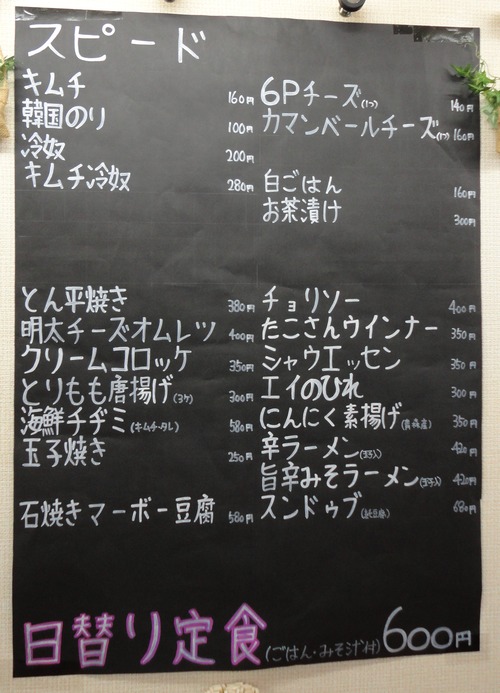 スピード
キムチ 160円
韓国のり 100円
冷奴 200円
キムチ冷奴 280円
6Pチーズ(1つ) 140円
カマンベールチーズ(1つ) 160円
白ごはん 160円
お茶漬け 300円
とん平焼き 380円
明太チーズオムレツ 400円
クリームコロッケ 350円
とりもも唐揚げ(3ケ) 300円
海鮮チヂミ(キムチ・タレ) 580円
玉子焼き 250円
石焼きマーボー豆腐 580円
チョリソー 400円
たこさんウインナー 350円
シャウエッセン 350円
エイのひれ 300円
にんにく素揚げ(青森産) 350円
辛ラーメン 420円
旨辛みそラーメン 420円
スンドゥブ 680円
日替り定食(ごはん・みそしる付) 600円